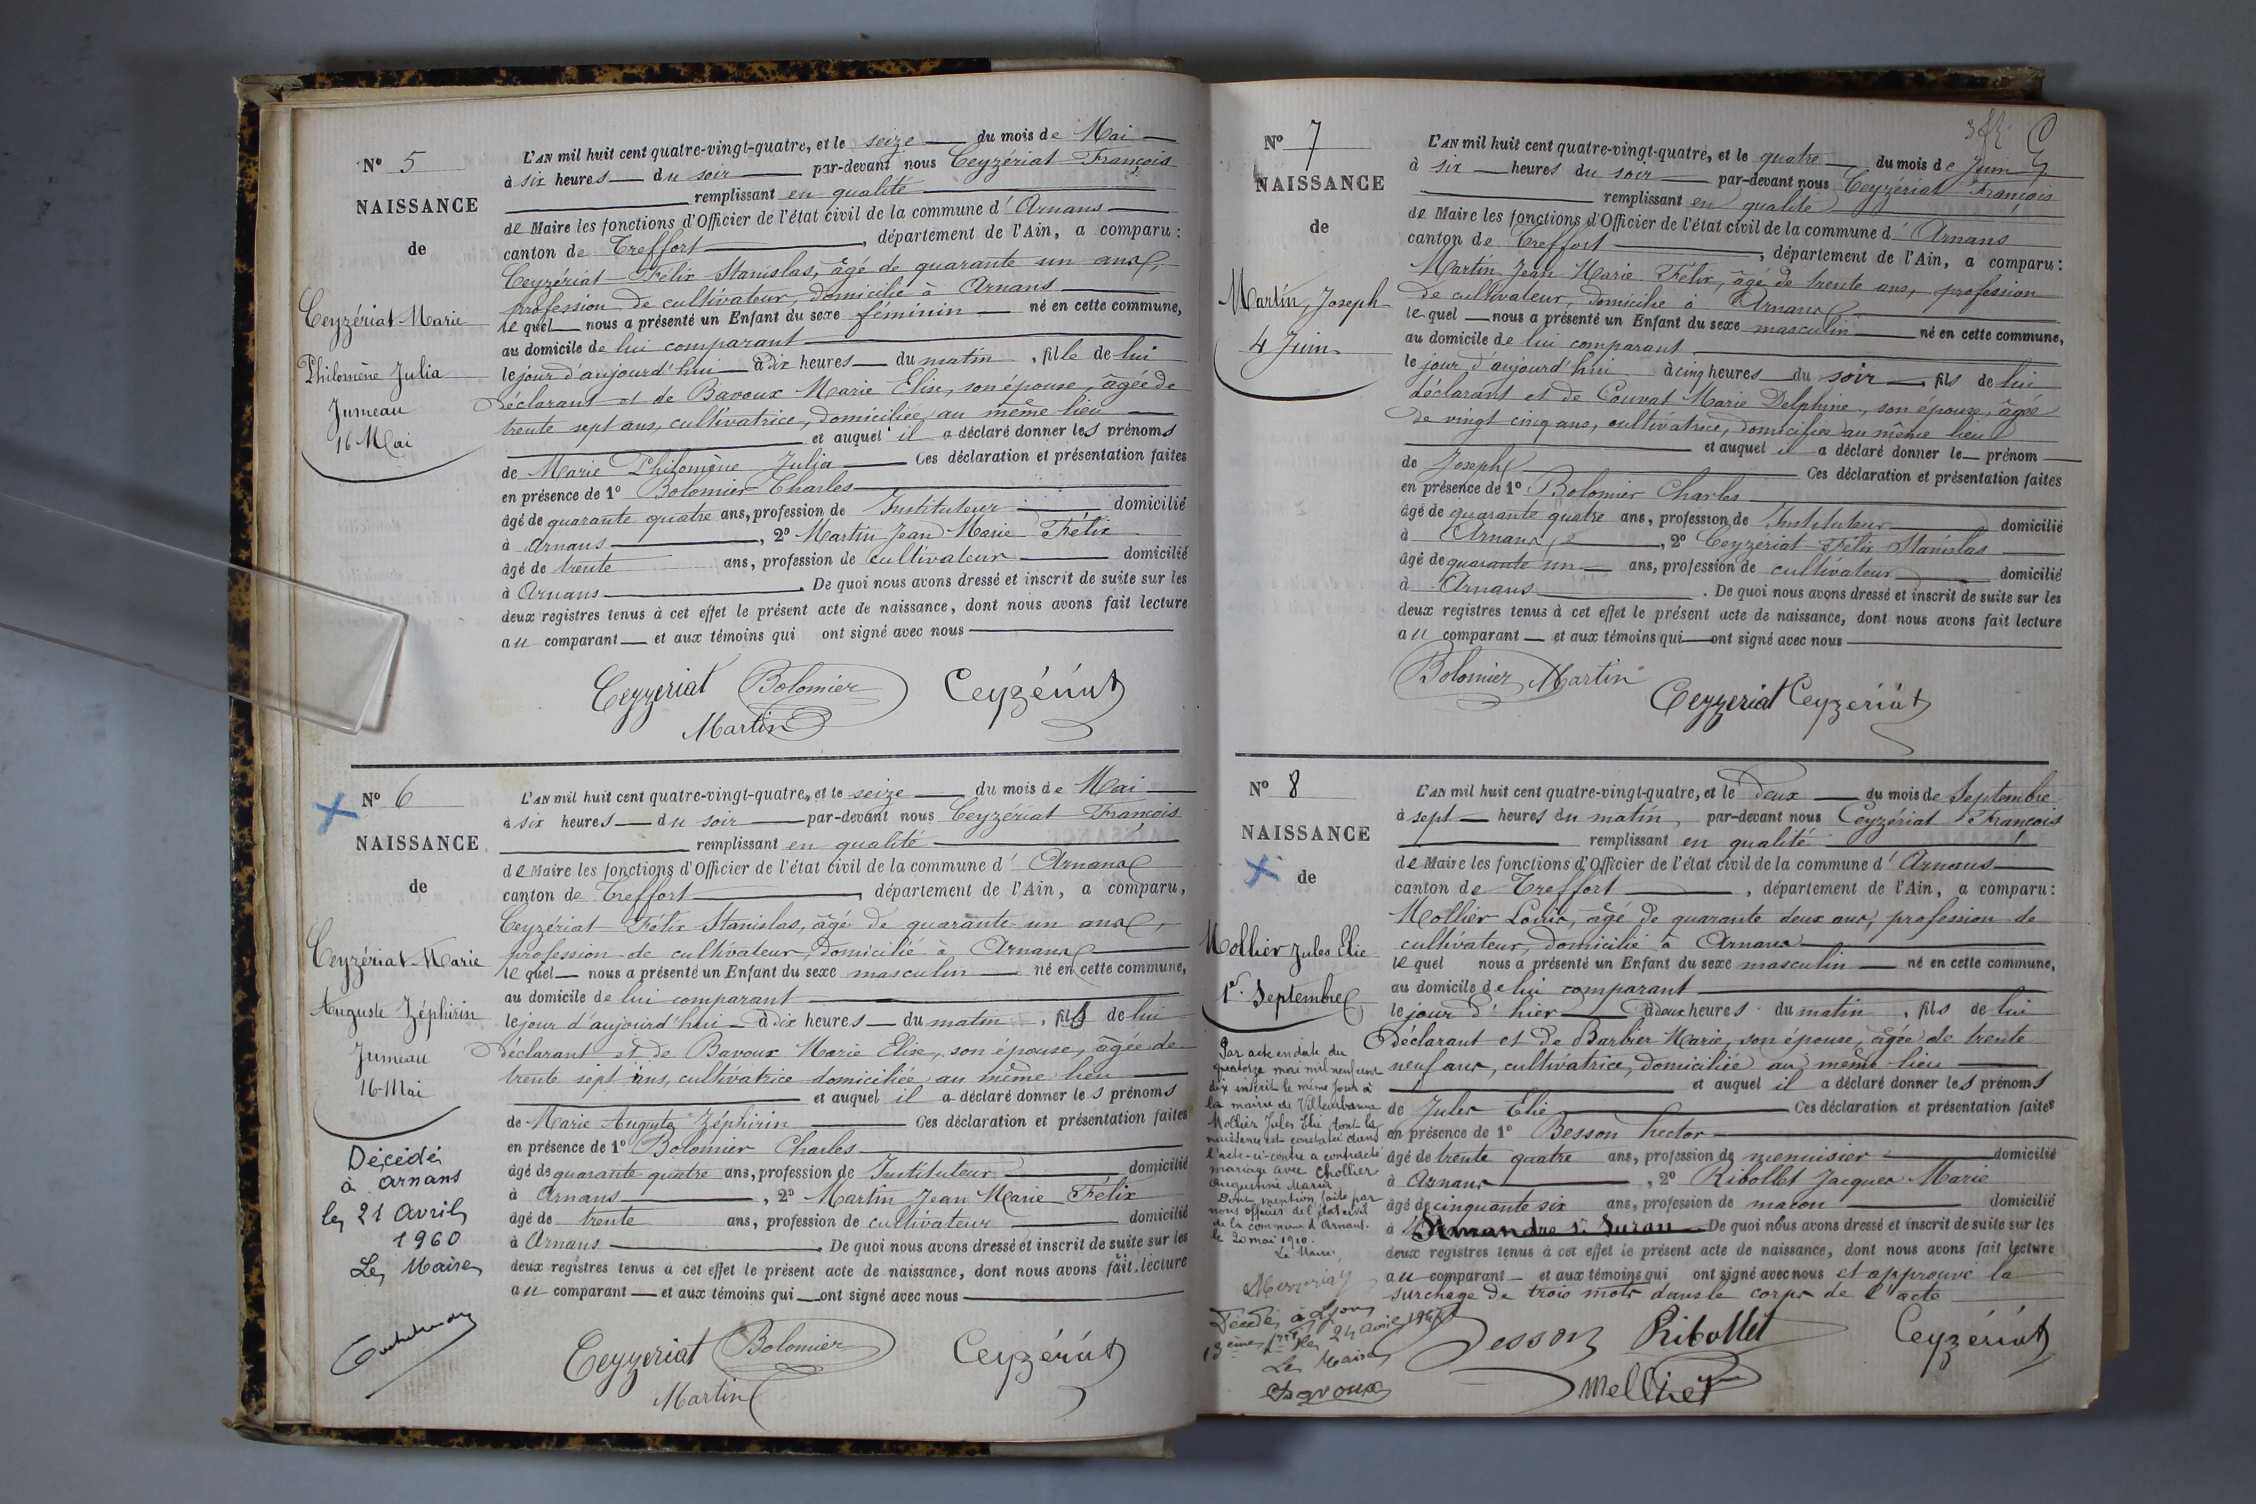 N° 5
NAISSANCE
de
Ceyzériat Marie
Philomène Julia
Jumeau
16 Mai
L'AN mil huit cent quatre-vingt-quatre, et le seize du mois de Mai
à six heures du soir par-devant nous Ceyzériat François
remplissant en qualité
de Maire les fonctions d'Officier de l'état civil de la commune d'Arnans
canton de Treffort, département de l'Ain, a comparu:
Ceyzériat Félix Stanislas, âgé de quarante un ans,
profession de cultivateur, domicilié à Arnans
lequel nous a présenté un Enfant du sexe féminin né en cette commune,
au domicile de lui comparant
le jour d'aujourd'hui à dix heures du matin, fille de lui
déclarant et de Bavoux Marie Elise, son épouse, âgée de
trente sept ans, cultivatrice, domiciliée au même lieu
et auquel il a déclaré donner les prénoms
de Marie Philomène Julia Ces déclaration et présentation faites
en présence de 1° Bolomier Charles
âgé de quarante quatre ans, profession de Instituteur domicilié
à Arnans, 2° Martin Jean Marie Félix
âgé de trente ans, profession de cultivateur domicilié
à Arnans. De quoi nous avons dressé et inscrit de suite sur les
deux registres tenus à cet effet le présent acte de naissance, dont nous avons fait lecture
au comparant et aux témoins qui ont signé avec nous
Ceyzeriat Bolomier Ceyzériat
Martin
N° 6
NAISSANCE
de
Ceyzériat Marie
Auguste Zéphirin
Jumeau
16 Mai
Décédé
à Arnans
le 21 Avril
1960
Le Maire
L'AN mil huit cent quatre-vingt-quatre, et le seize du mois de Mai
à six heures du soir par-devant nous Ceyzériat François
remplissant en qualité
de Maire les fonctions d'Officier de l'état civil de la commune d'Arnans
canton de Treffort, département de l'Ain, a comparu,
Ceyzériat Félix Stanislas, âgé de quarante un ans,
profession de cultivateur, domicilié à Arnans
lequel nous a présenté un Enfant du sexe masculin né en cette commune,
au domicile de lui comparant
le jour d'aujourd'hui à dix heures du matin, fils de lui
déclarant et de Bavoux Marie Elise, son épouse, âgée de
trente sept ans, cultivatrice domiciliée au même lieu
et auquel il a déclaré donner les prénoms
de Marie Auguste Zéphirin Ces déclaration et présentation faites
en présence de 1° Bolomier Charles
âgé de quarante quatre ans, profession de Instituteur domicilié
à Arnans, 2° Martin Jean Marie Félix
âgé de trente ans, profession de cultivateur domicilié
à Arnans. De quoi nous avons dressé et inscrit de suite sur les
deux registres tenus à cet effet le présent acte de naissance, dont nous avons fait lecture
au comparant et aux témoins qui ont signé avec nous
Ceyzeriat Bolomier Ceyzériat
Martin
N° 7
NAISSANCE
de
Martin, Joseph
4 Juin
L'AN mil huit cent quatre-vingt-quatre, et le quatre du mois de Juin
à six heures du soir par-devant nous Ceyzériat François
remplissant en qualité
de Maire les fonctions d'Officier de l'état civil de la commune d'Arnans
canton de Treffort, département de l'Ain, a comparu:
Martin Jean Marie Félix, âgé de trente ans, profession
de cultivateur, domicilié à Arnans
lequel nous a présenté un Enfant du sexe masculin né en cette commune,
au domicile de lui comparant
le jour d'aujourd'hui à cinq heures du soir fils de lui
déclarant et de Couvat Marie Delphine, son épouse, âgée
de vingt cinq ans, cultivatrice, domiciliée au même lieu
et auquel il a déclaré donner le prénom
de Joseph Ces déclaration et présentation faites
en présence de 1° Bolomier Charles
âgé de quarante quatre ans, profession de Instituteur domicilié
à Arnans, 2° Ceyzériat Félix Stanislas
âgé de quarante un ans, profession de cultivateur domicilié
à Arnans. De quoi nous avons dressé et inscrit de suite sur les
deux registres tenus à cet effet le présent acte de naissance, dont nous avons fait lecture
au comparant et aux témoins qui ont signé avec nous
Bolomier Martin
Ceyzeriat Ceyzériat
N° 8
NAISSANCE
de
Mollier Jules Elie
1er Septembre
Par acte en date du
quatorze mai mil neuf cent
dix inscrit le même jour à
la mairie de Villeurbanne
Mollier Jules Elie dont la
naissance est constatée dans
l'acte ci-contre a contracté
mariage avec Chollier
Augustine Marie
Dont mention faite par
nous officier de l'état civil
de la commune d'Arnans.
le 20 mai 1910.
Le Maire,
Décédé à Lyon
Le Maire
L'AN mil huit cent quatre-vingt-quatre, et le deux du mois de Septembre
à sept heures du matin, par-devant nous Ceyzériat François
remplissant en qualité
de Maire les fonctions d'Officier de l'état civil de la commune d'Arnans
canton de Treffort, département de l'Ain, a comparu:
Mollier Louis, âgé de quarante deux ans, profession de
cultivateur, domicilié à Arnans
lequel nous a présenté un Enfant du sexe masculin né en cette commune,
au domicile de lui comparant
le jour d'hier à deux heures du matin, fils de lui
déclarant et de Barbier Marie, son épouse, âgée de trente
neuf ans, cultivatrice, domiciliée au même lieu
et auquel il a déclaré donner les prénoms
de Jules Elie Ces déclaration et présentation faites
en présence de 1° Besson hector
âgé de trente quatre ans, profession de menuisier domicilié
à Arnans, 2° Ribollet Jacques Marie
âgé de cinquante six ans, profession de maçon domicilié
à Simandre s. Suran De quoi nous avons dressé et inscrit de suite sur les
deux registres tenus à cet effet le présent acte de naissance, dont nous avons fait lecture
au comparant et aux témoins qui ont signé avec nous et approuvé la
surchage de trois mots dans le corps de l'acte
Besson Ribollet Ceyzériat